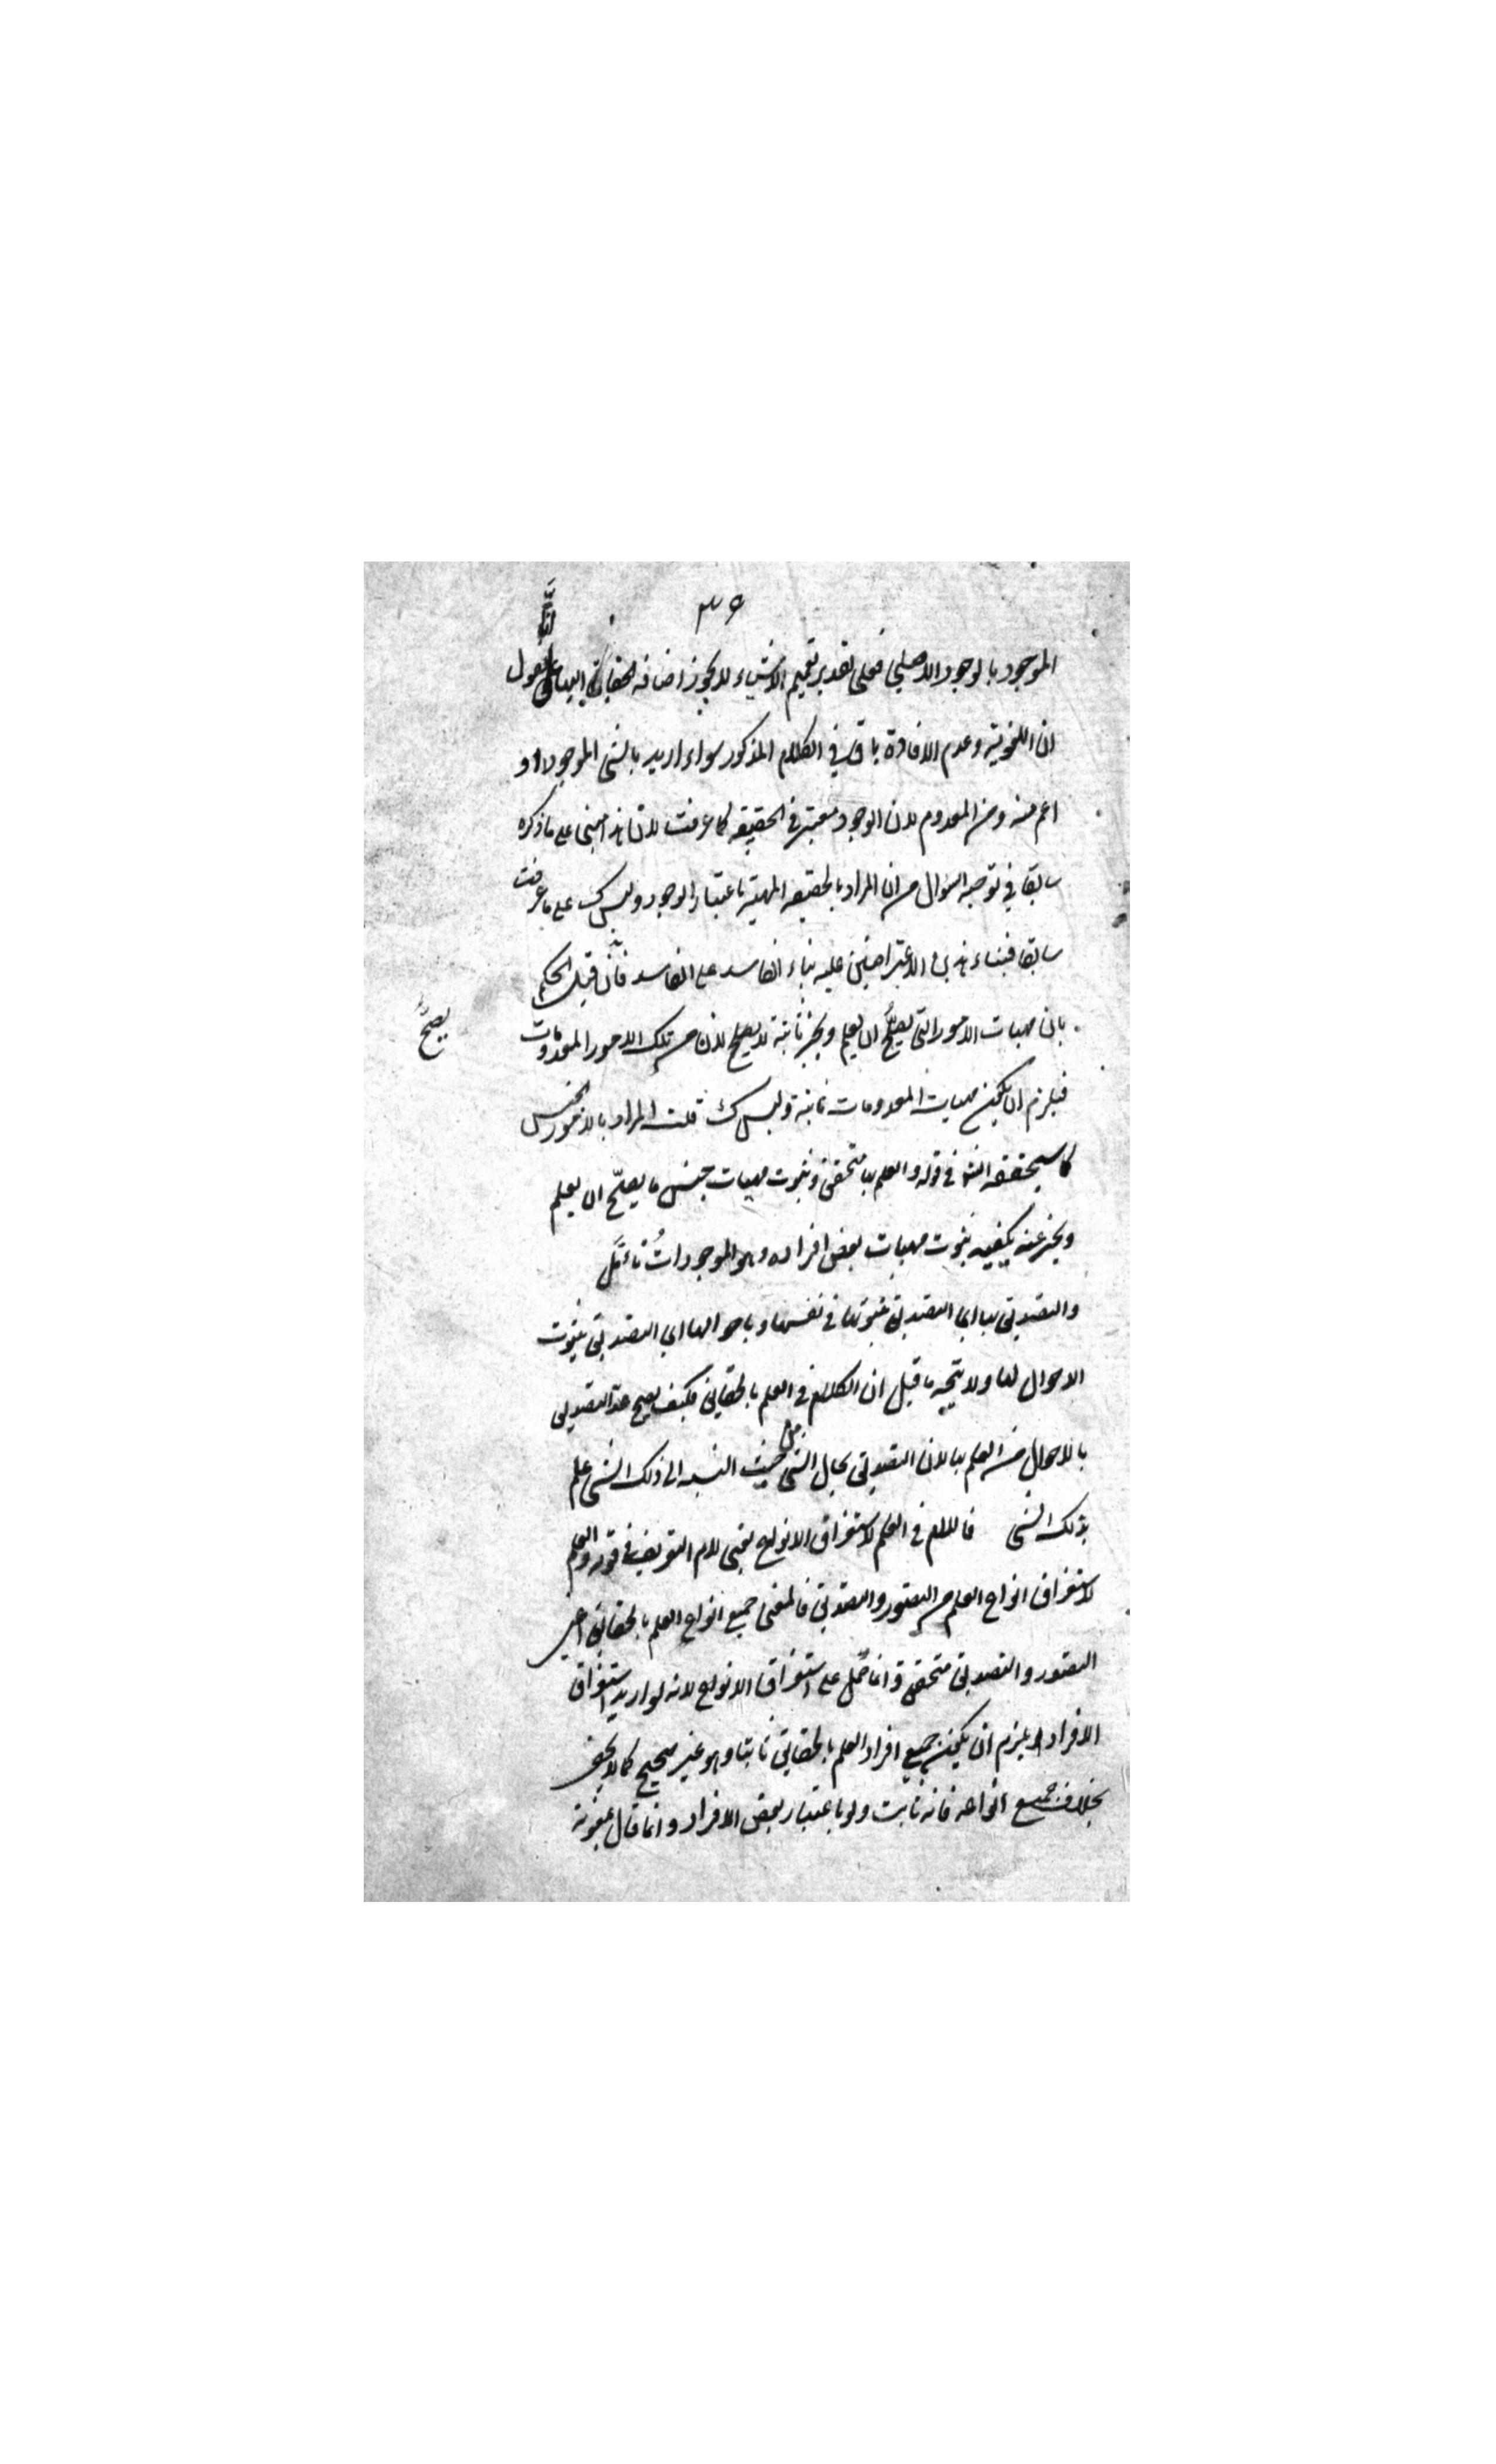 ٣٩
الموجود بالوجود الاصلي فعلى تقدير تعميم الاشياء لا يجوز اضافة الحقايق اليها نقول
ان اللغوية وعدم الافادة باق في الكلام المذكور سواء اريد بالشي الموجود او
اعم منه ومن المعدوم لان الوجود معتبر في الحقيقه كما عرفت لان هذا مبنى على ما ذكره
سابقا في توجيه السؤال من ان المراد بالحقيقه المهية باعتبار الوجود وليس ك على ما عرفت
سابقا فبناء الاعتراضين عليه بناء الفاسد على الفاسد فان قيل الحكم
بان مهيات الامور التى يصح ان يعلم ويخبر ثابتة لا يصح لان من تلك الامور المعدومات
يصح
فيلزم ان يكون مهيات المعدومات ثابتة وليس ك قلت المراد بالامور الجنس
كما سيحققه الش في قوله والعلم بها متحقق وثبوت مهيات جنس ما يصح ان يعلم
ويخبر عنه يكفيه ثبوت مهيات بعض افراده وهو الموجودات تأمل
والتصديق بها اي التصديق بثبوتها في نفسها وباحوالها اي التصديق بثبوت
الاحوال لها ولا يتجه ما قيل ان الكلام في العلم بالحقايق فكيف يصح عد التصديق
بالاحوال من العلم بها لان التصديق بحال الشي من حيث النسبه الى ذلك الشي علم
بذلك الشي فاللام في العلم لاستغراق الانواع يعنى لام التعريف في قوله والعلم
لاستغراق انواع العلم من التصور والتصديق فالمعنى جميع انواع العلم بالحقايق اعنى
التصور والتصديق متحقق وانما حمل على استغراق الانواع لانه لو اريد استغراق
الافراد يلزم ان يكون جميع افراد العلم بالحقايق ثابتا وهو غير صحيح كما لا يخفى
بخلاف جميع انواعه فانه ثابت ولو باعتبار بعض الافراد وانما قال بمعونة